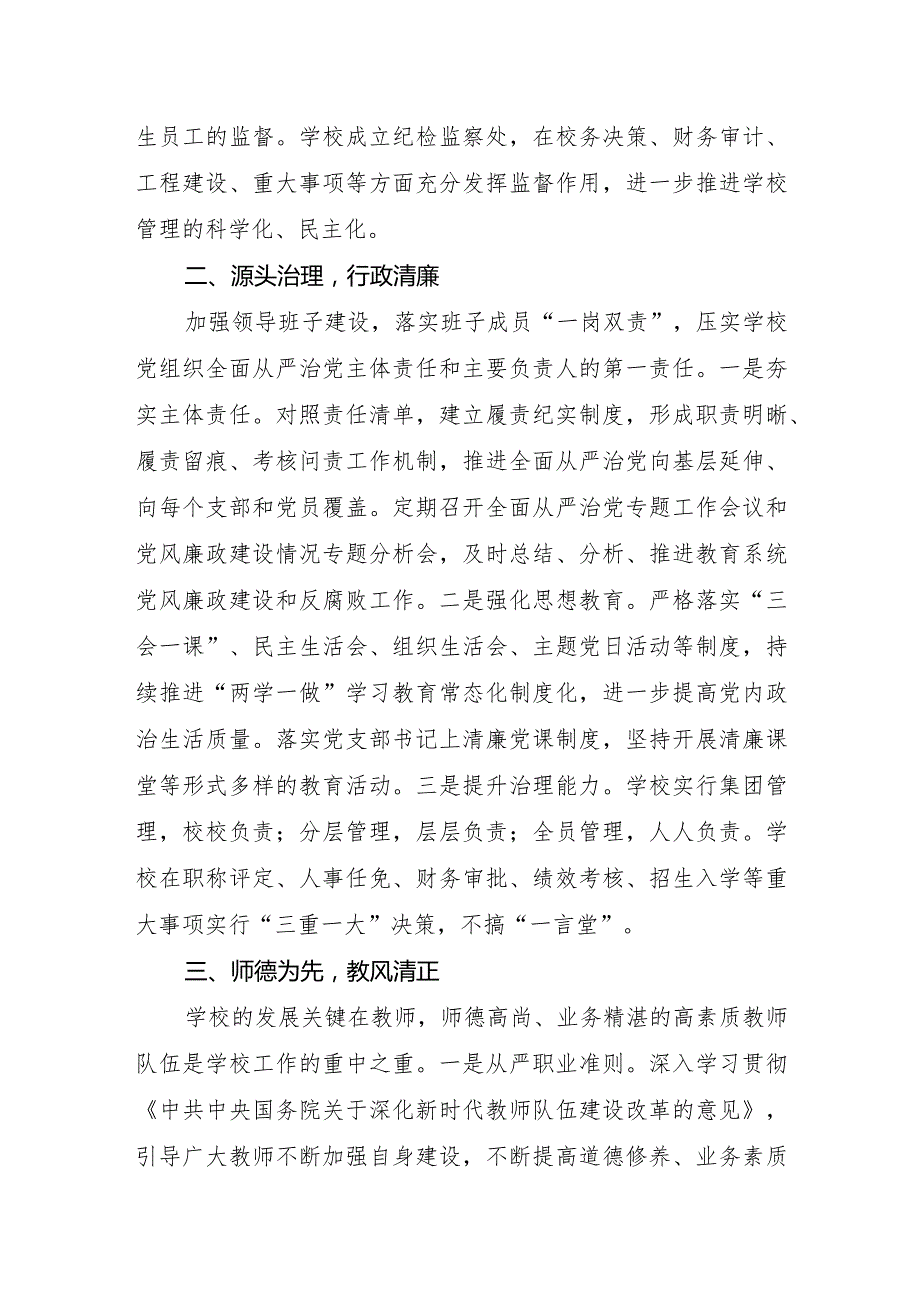 生员工的监督。学校成立纪检监察处，在校务决策、财务审计、
工程建设、重大事项等方面充分发挥监督作用，进一步推进学校
管理的科学化、民主化。
二、源头治理，行政清廉
加强领导班子建设，落实班子成员“一岗双责”，压实学校
党组织全面从严治党主体责任和主要负责人的第一责任。一是夯
实主体责任。对照责任清单，建立履责纪实制度，形成职责明晰、
履责留痕、考核问责工作机制，推进全面从严治党向基层延伸、
向每个支部和党员覆盖。定期召开全面从严治党专题工作会议和
党风廉政建设情况专题分析会，及时总结、分析、推进教育系统
党风廉政建设和反腐败工作。二是强化思想教育。严格落实“三
会一课”、民主生活会、组织生活会、主题党日活动等制度，持
续推进“两学一做”学习教育常态化制度化，进一步提高党内政
治生活质量。落实党支部书记上清廉党课制度，坚持开展清廉课
堂等形式多样的教育活动。三是提升治理能力。学校实行集团管
理，校校负责；分层管理，层层负责；全员管理，人人负责。学
校在职称评定、人事任免、财务审批、绩效考核、招生入学等重
大事项实行“三重一大”决策，不搞“一言堂”。
三、师德为先，教风清正
学校的发展关键在教师，师德高尚、业务精湛的高素质教师
队伍是学校工作的重中之重。一是从严职业准则。深入学习贯彻
《中共中央国务院关于深化新时代教师队伍建设改革的意见》，
引导广大教师不断加强自身建设，不断提高道德修养、业务素质